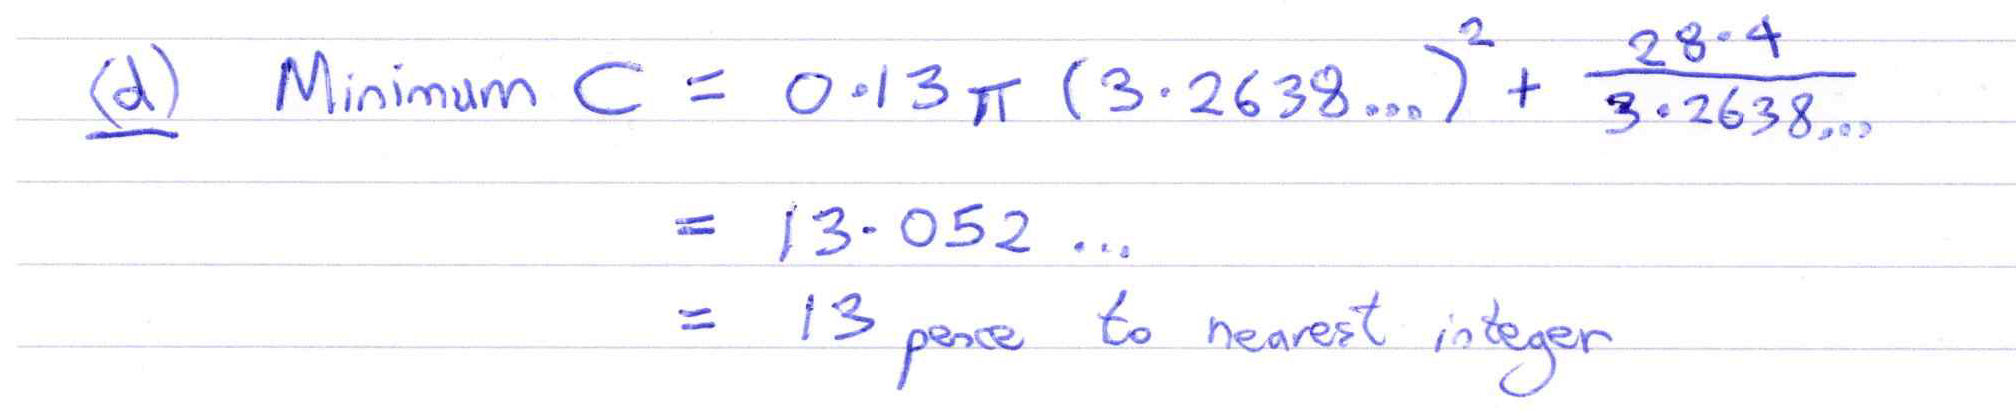 (d) Minimum C = 0.13π (3.2638...)² + 28.4/3.2638...
= 13.052...
= 13 pence to nearest integer